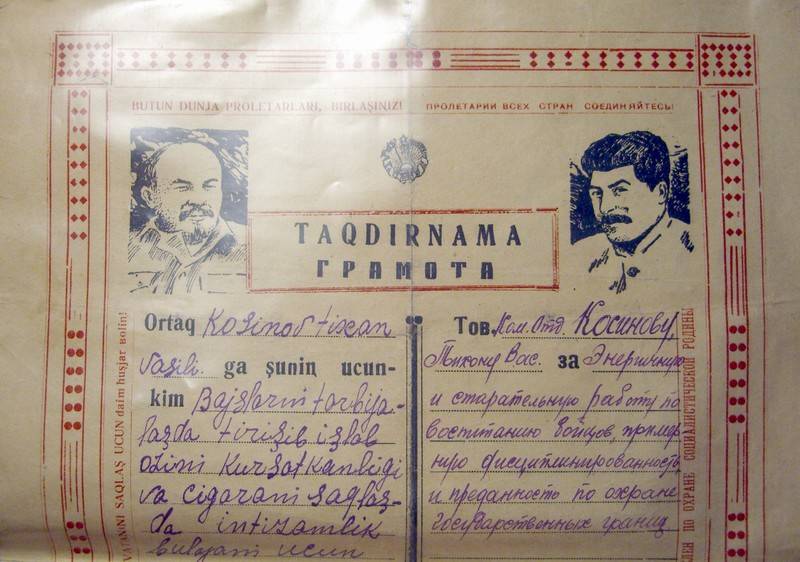 BUTUN DUNJA PROLETARLARI, BIRLAŞINIZ!
ПРОЛЕТАРИИ ВСЕХ СТРАН СОЕДИНЯЙТЕСЬ!
TAQDIRNAMA
ГРАМОТА
Ortaq Kosinov tixan
Vasili. ga şuniņ ucun-
kim Bajslarni tarbija-
laşda tirişib işlab
ozini kursatkanligi
va cigarani saqlaş-
da intizamlik
bulgani ucun
Тов. Ком. Отд. Косинову,
Тихону Вас. за Энергичную
и старательную работу по
воспитанию бойцов, пример-
ную дисциплинированность
и преданность по охране
государственных границ
VATANINI SAQLAŞ UCUN daim huşjar
ПО ОХРАНЕ СОЦИАЛИСТИЧЕСКОЙ РОДИНЫ